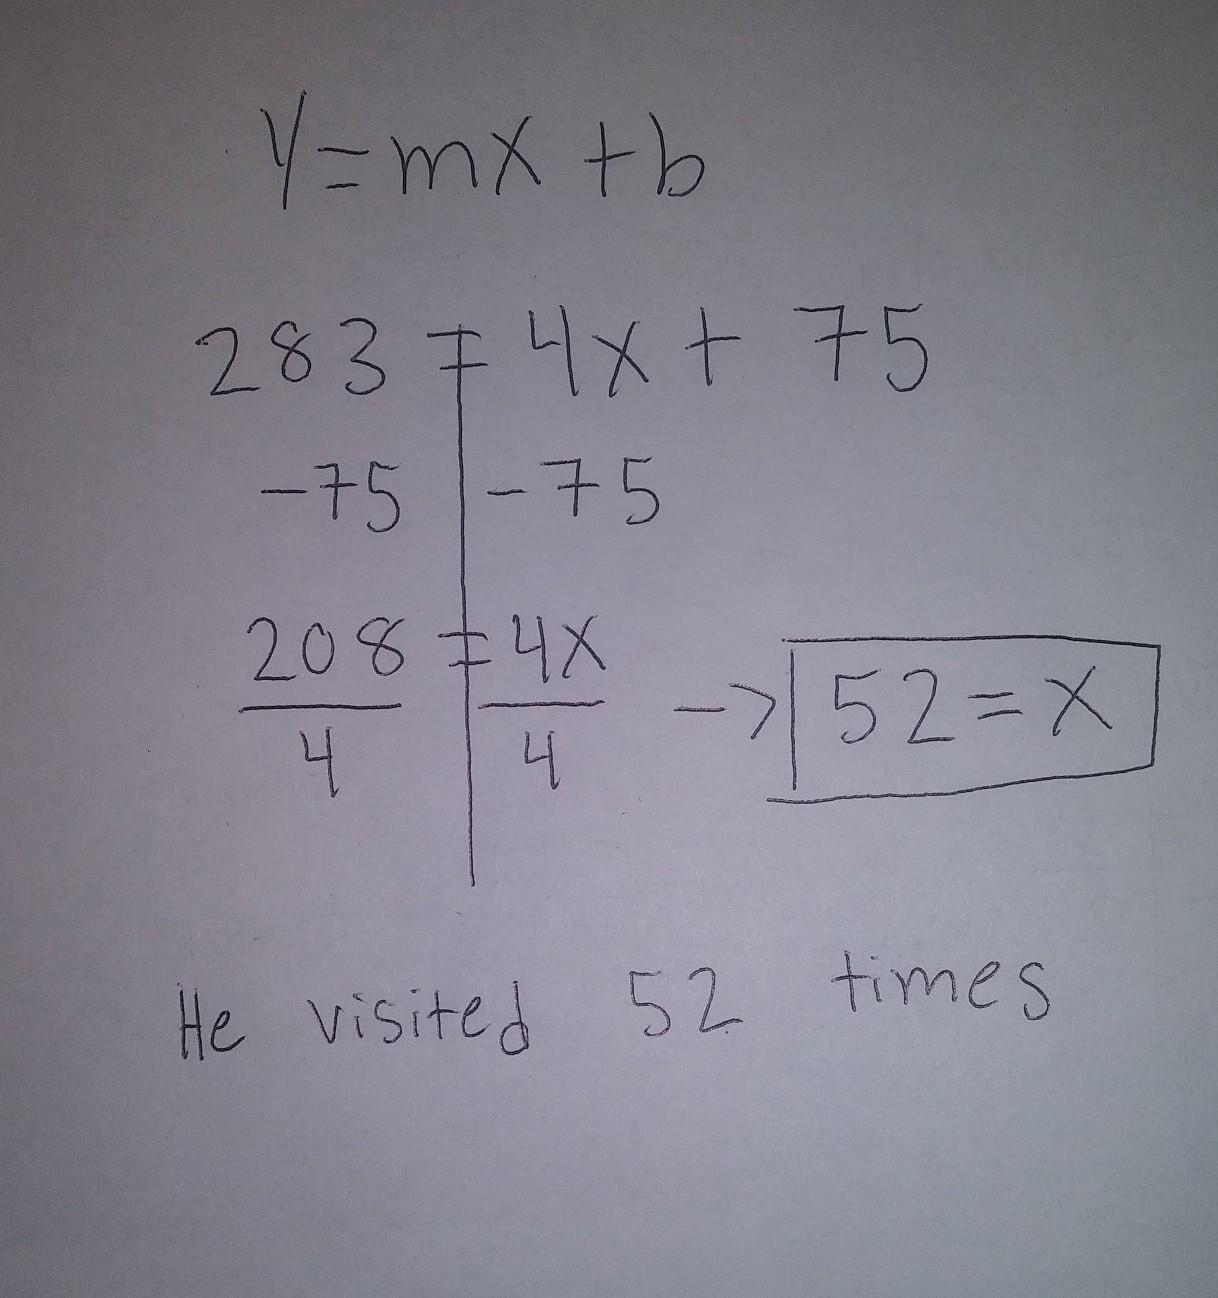 Y=mX+b
283=4x+75
-75 -75
208=4X
4 4 ->52=X
He visited 52 times